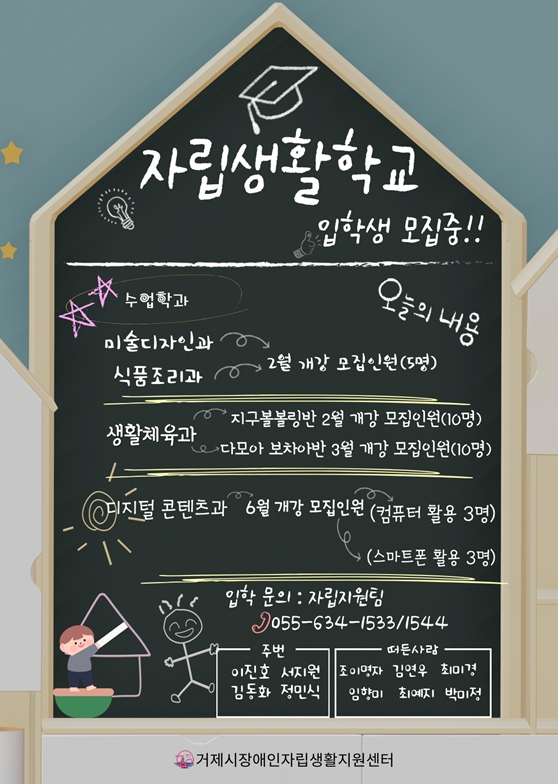 자립생활학교
입학생 모집중!!
수업학과
오늘의 내용
미술디자인과
식품조리과
2월 개강 모집인원(5명)
생활체육과
지구볼볼링반 2월 개강 모집인원(10명)
다모아 보차아반 3월 개강 모집인원(10명)
디지털 콘텐츠과 6월 개강 모집인원 (컴퓨터 활용 3명)
(스마트폰 활용 3명)
입학 문의 : 자립지원팀
055-634-1533/1544
주번
이진호 서지원
김동화 정민식
떠든사람
조이명자 김연우 최미경
임향미 최예지 박미정
거제시장애인자립생활지원센터